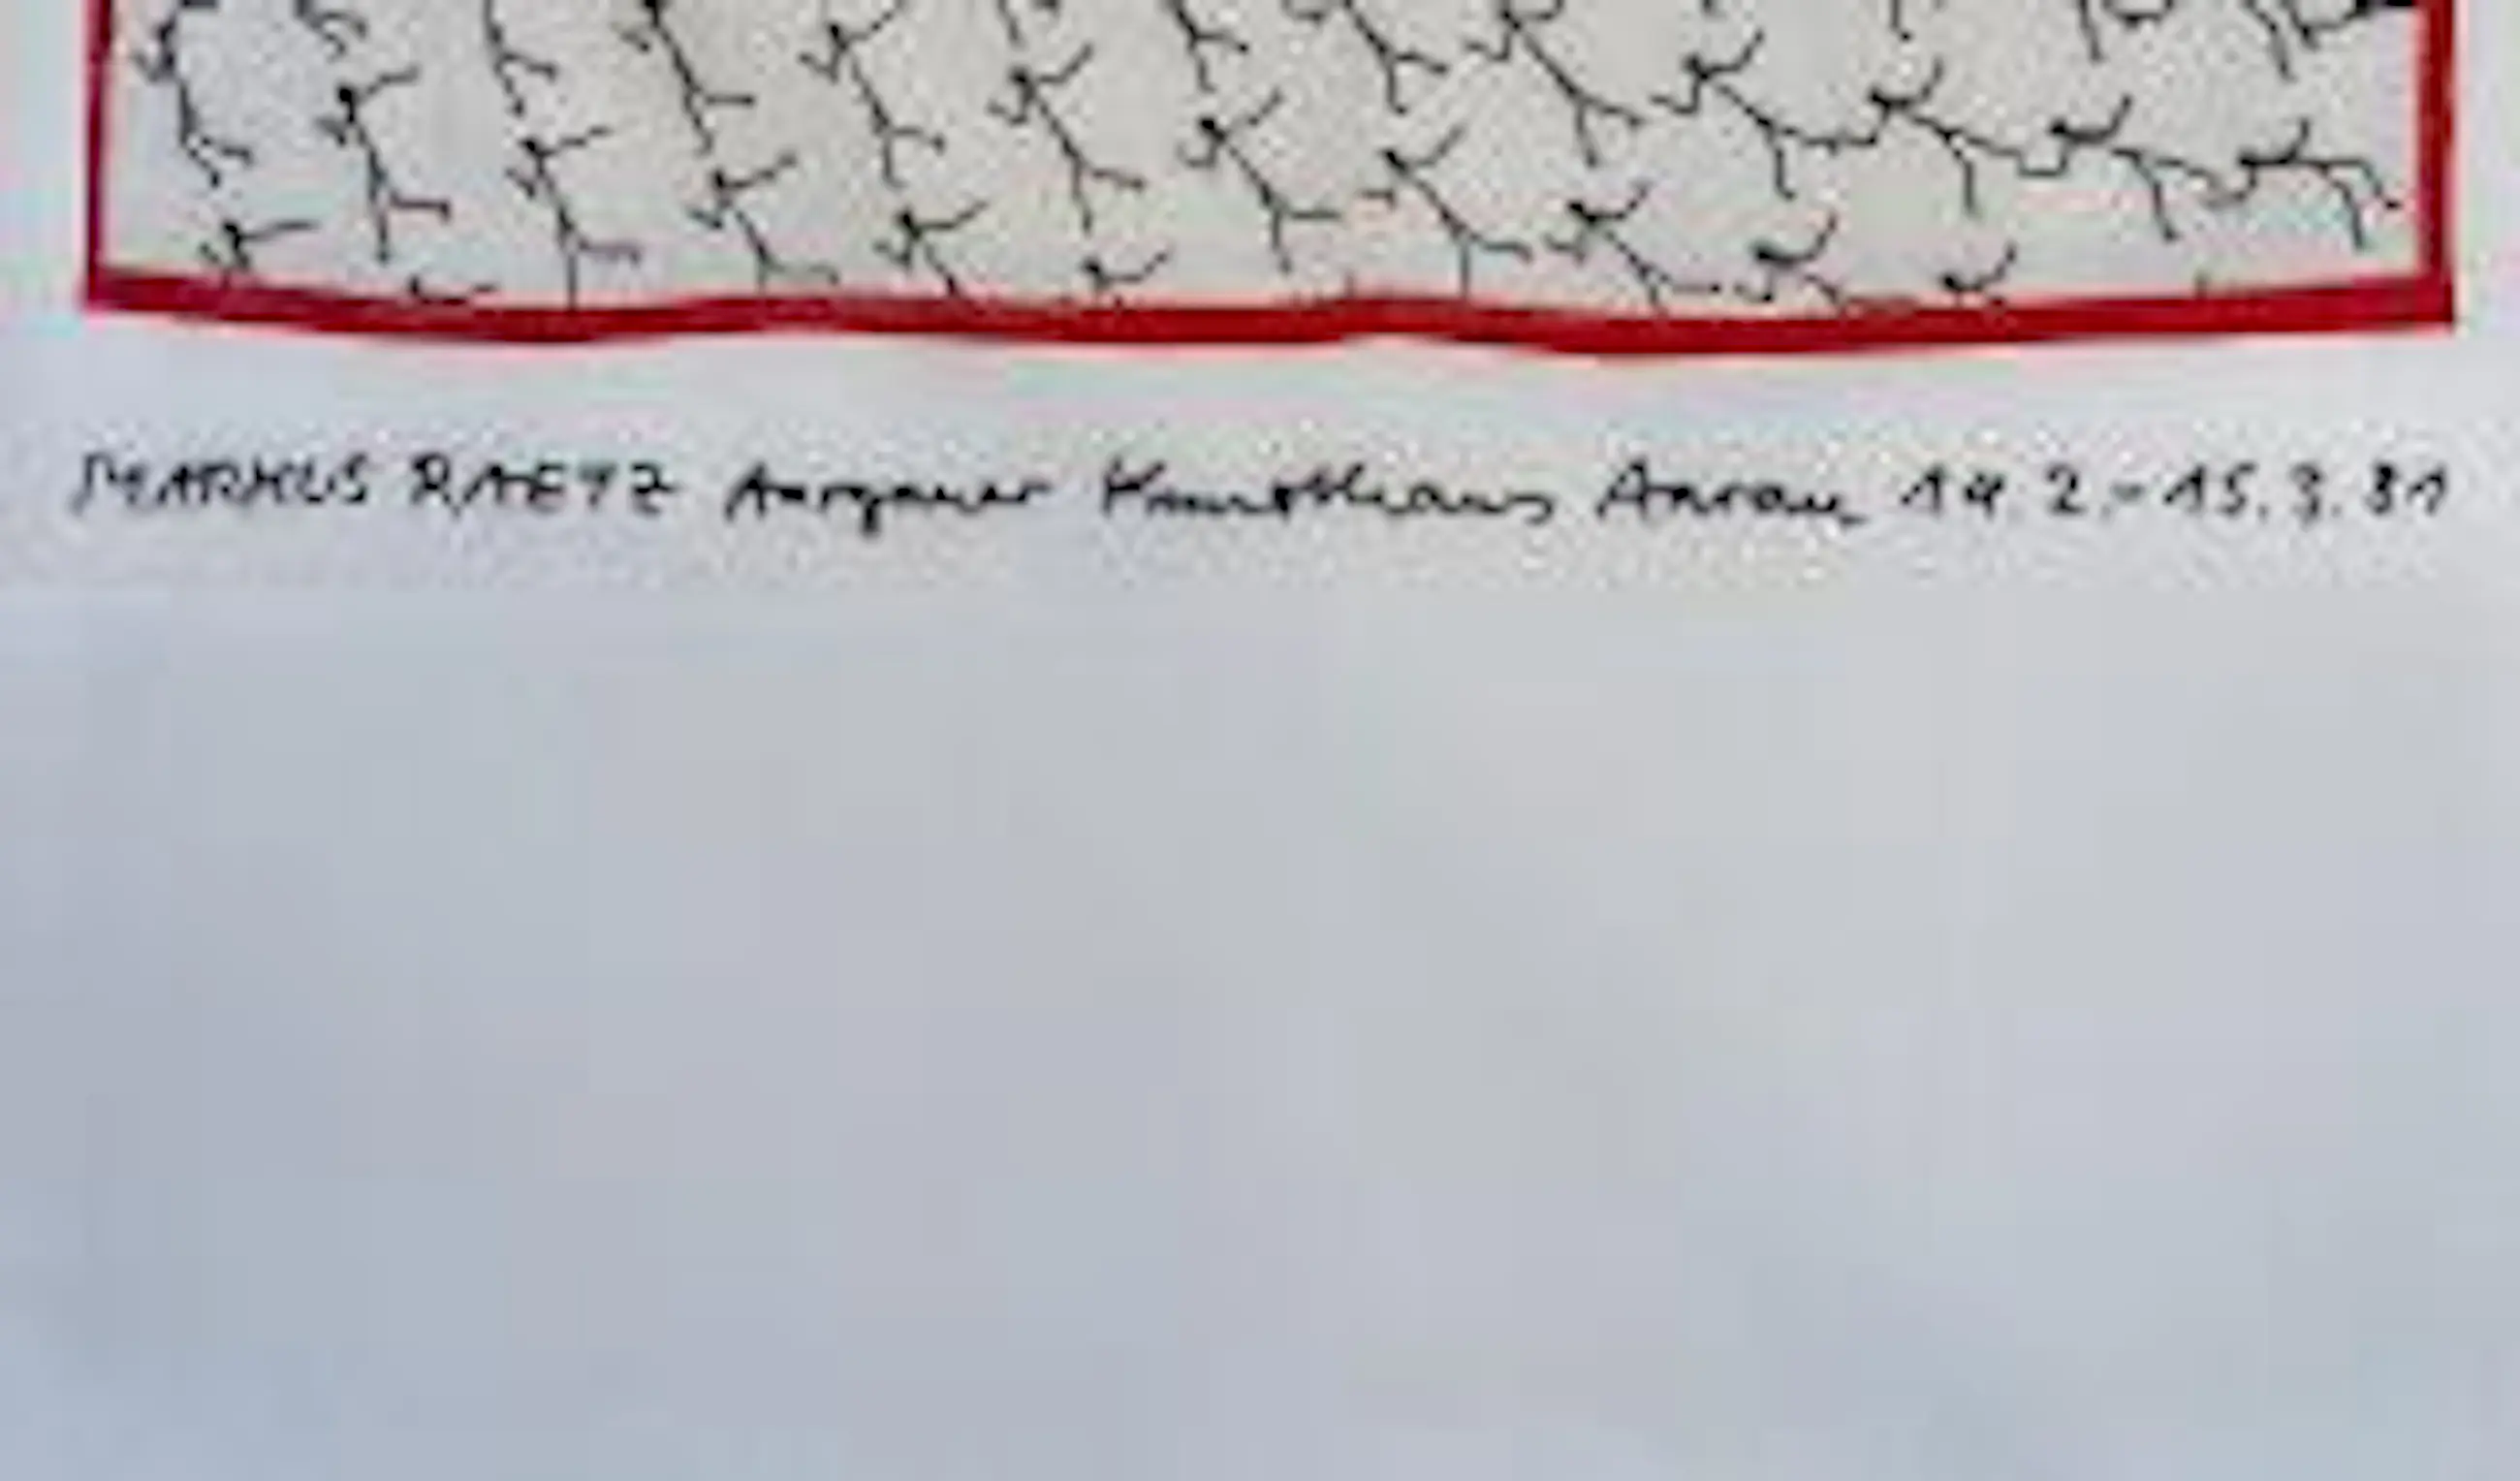 MARKUS RAETZ Aargauer Kunsthaus Aarau 14.2.-15.3.81